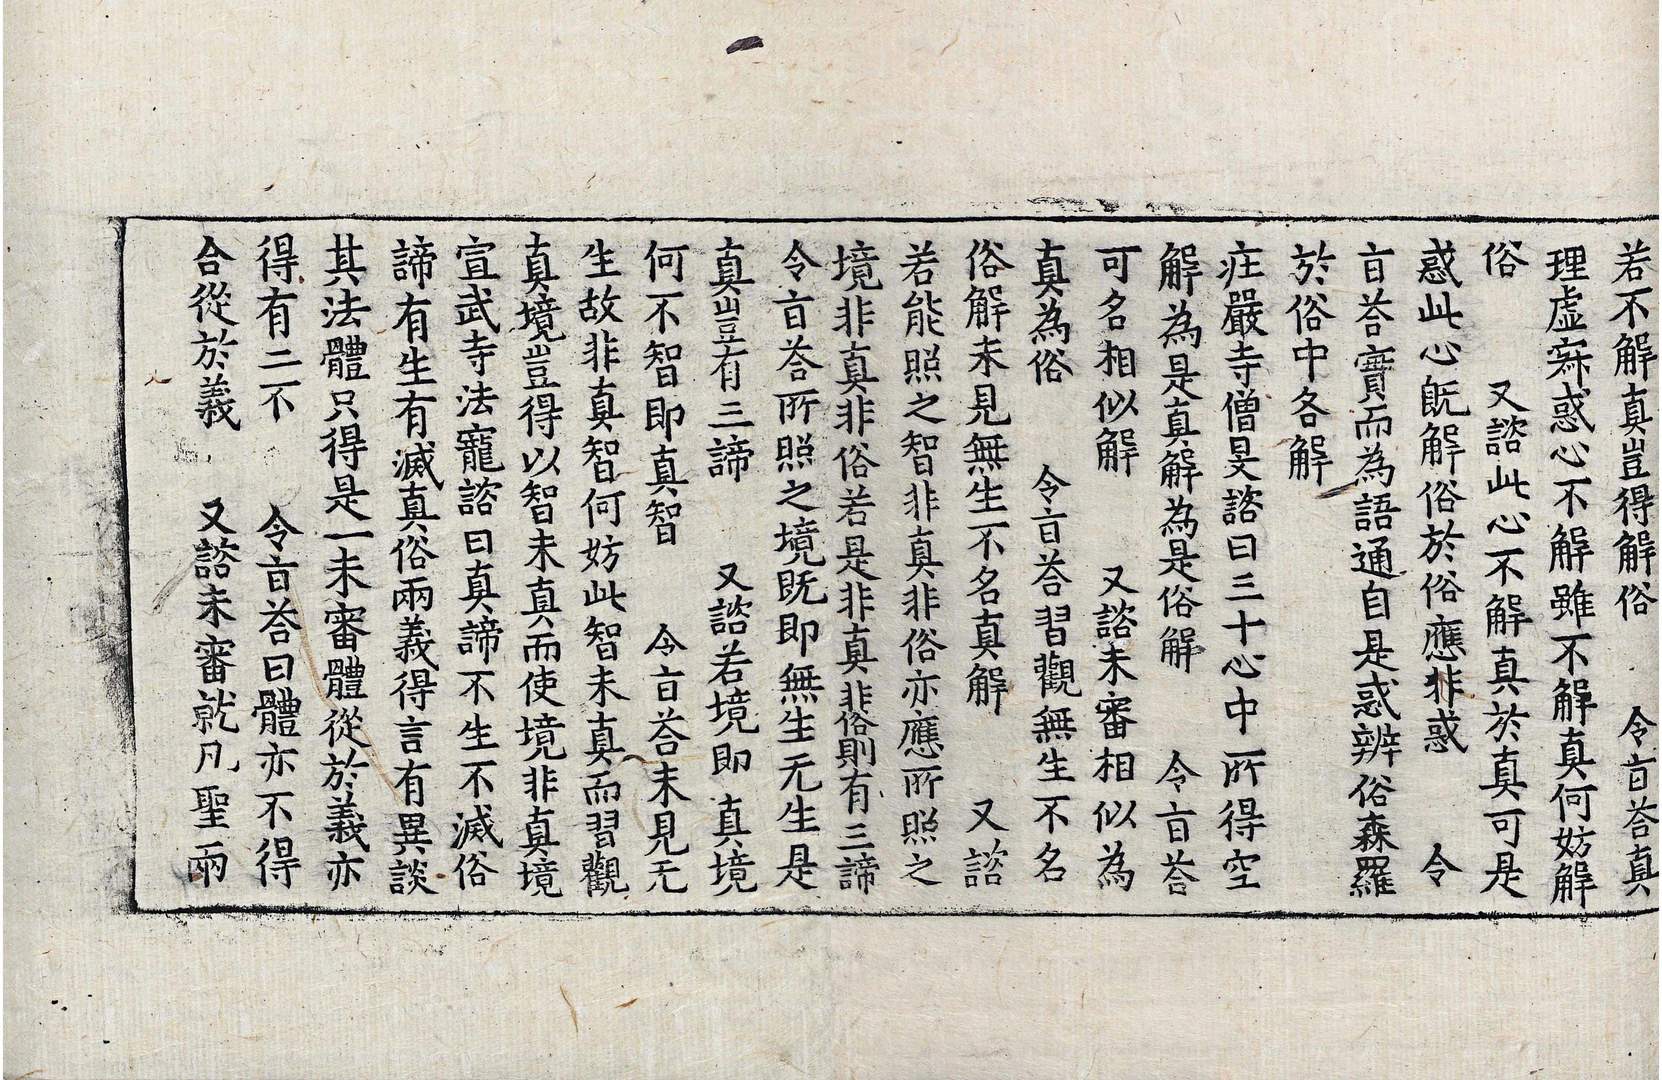 若不解真豈得解俗　令旨荅真
理虛寐惑心不解雖不解真何妨解
俗　又諮此心不解真於真可是
惑此心既解俗於俗應非惑　令
旨荅實而為語通自是惑辨俗森羅
於俗中各解
庄嚴寺僧旻諮曰三十心中所得空
解為是真解為是俗解　令旨荅
可名相似解　又諮未審相似為
真為俗　令旨荅習觀無生不名
俗解未見無生不名真解　又諮
若能照之智非真非俗亦應所照之
境非真非俗若是非真非俗則有三諦
令旨荅所照之境既即無生无生是
真豈有三諦　又諮若境即真境
何不智即真智　令旨荅未見无
生故非真智何妨此智未真而習觀
真境豈得以智未真而使境非真境
宣武寺法寵諮曰真諦不生不滅俗
諦有生有滅真俗兩義得言有異談
其法體只得是一未審體從於義亦
得有二不　令旨荅曰體亦不得
合從於義　又諮未審就凡聖兩